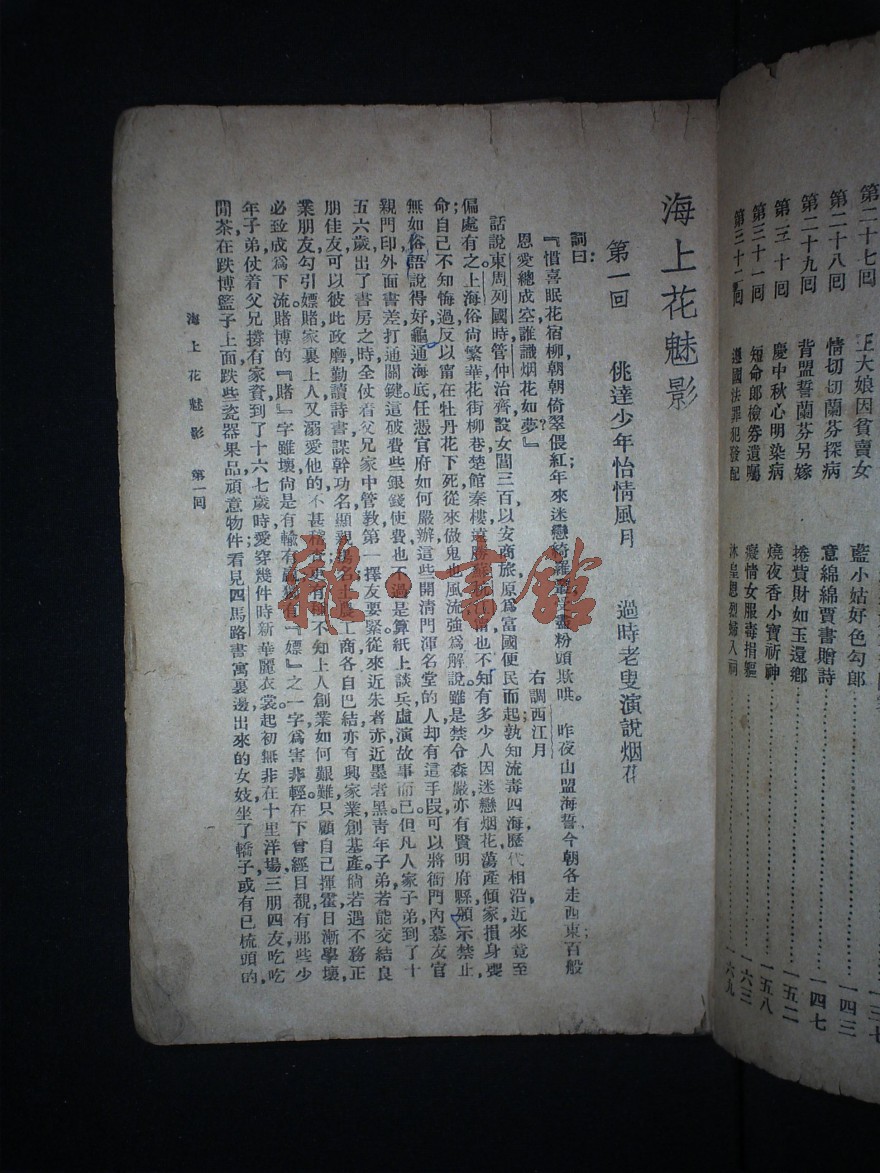 一三七
第二十七回 王大娘因貧賣女 藍小姑好色勾郎………一四三
第二十八回 情切切蘭芬探病 意綿綿賈書贈詩………一四七
第二十九回 背盟誓蘭芬另嫁 捲貲財如玉還鄉………一五二
第三十回 慶中秋心明染病 燒夜香小寶祈神………一五八
第三十一回 短命郎檢券遺囑 癡情女服毒捐軀………一六三
第三十二回 遵國法罪犯發配 沐皇恩烈婦入祠………一六九
海上花魅影
第一回 佻達少年怡情風月 過時老叟演說烟花
詞曰：
『慣喜眠花宿柳，朝朝倚翠偎紅，年來迷戀綺羅叢，受盡粉頭欺哄。 昨夜山盟海誓，今朝各走西東，百般
恩愛總成空，誰識烟花如夢？』 右調西江月
話說東周列國時，管仲治齊，設女閭三百，以安商旅，原爲富國便民而起；孰知流毒四海，歷代相沿，近來竟至
偏處有之。上海俗尙繁華，花街柳巷，楚館秦樓，遠勝蘇杭江甯，也不知有多少人因迷戀烟花，蕩產傾家，損身喪
命；自己不知悔過，反以甯在牡丹花下死，從來做鬼也風流，強爲解說。雖是禁令森嚴，亦有賢明府縣頒示禁止，
無如俗語說得好：龜通海底，任憑官府如何嚴辦，這些開清門渾名堂的人，却有這手段，可以將衙門內慕友官
親，門印外面書差，打通關鍵，這破費些銀錢使費，也不過是算紙上談兵，虛演故事而已。但凡人家子弟，到了十
五六歲，出了書房之時，全仗着父兄家中管教，第一擇友要緊。從來近朱者亦，近墨者黑，靑年子弟，若能交結良
朋佳友，可以彼此政磨，勤讀詩書，謀幹功名，顯親揚名；士農工商，各自巴結，亦有興家業，創基產。倘若遇不務正
業朋友，勾引嫖賭，家裏上人又溺愛他的，不甚稽查，更有種不知上人創業如何艱難，只顧自己揮霍，日漸學壞，
必致成爲下流。賭博的『賭』字雖壞，尙是有輸有贏，獨有『嫖』之一字，爲害非輕。在下曾經目覩有那些少
年子弟，仗着父兄撐有家資，到了十六七歲時，愛穿幾件時新華麗衣裳，起初無非在十里洋場，三朋四友，吃吃
閒茶，在跌博籃子上面，跌些瓷器果品，頑意物件；看見四馬路書寓裏邊出來的女妓，坐了轎子，或有已梳頭的，
海上花魅影 第一回
雜·書館